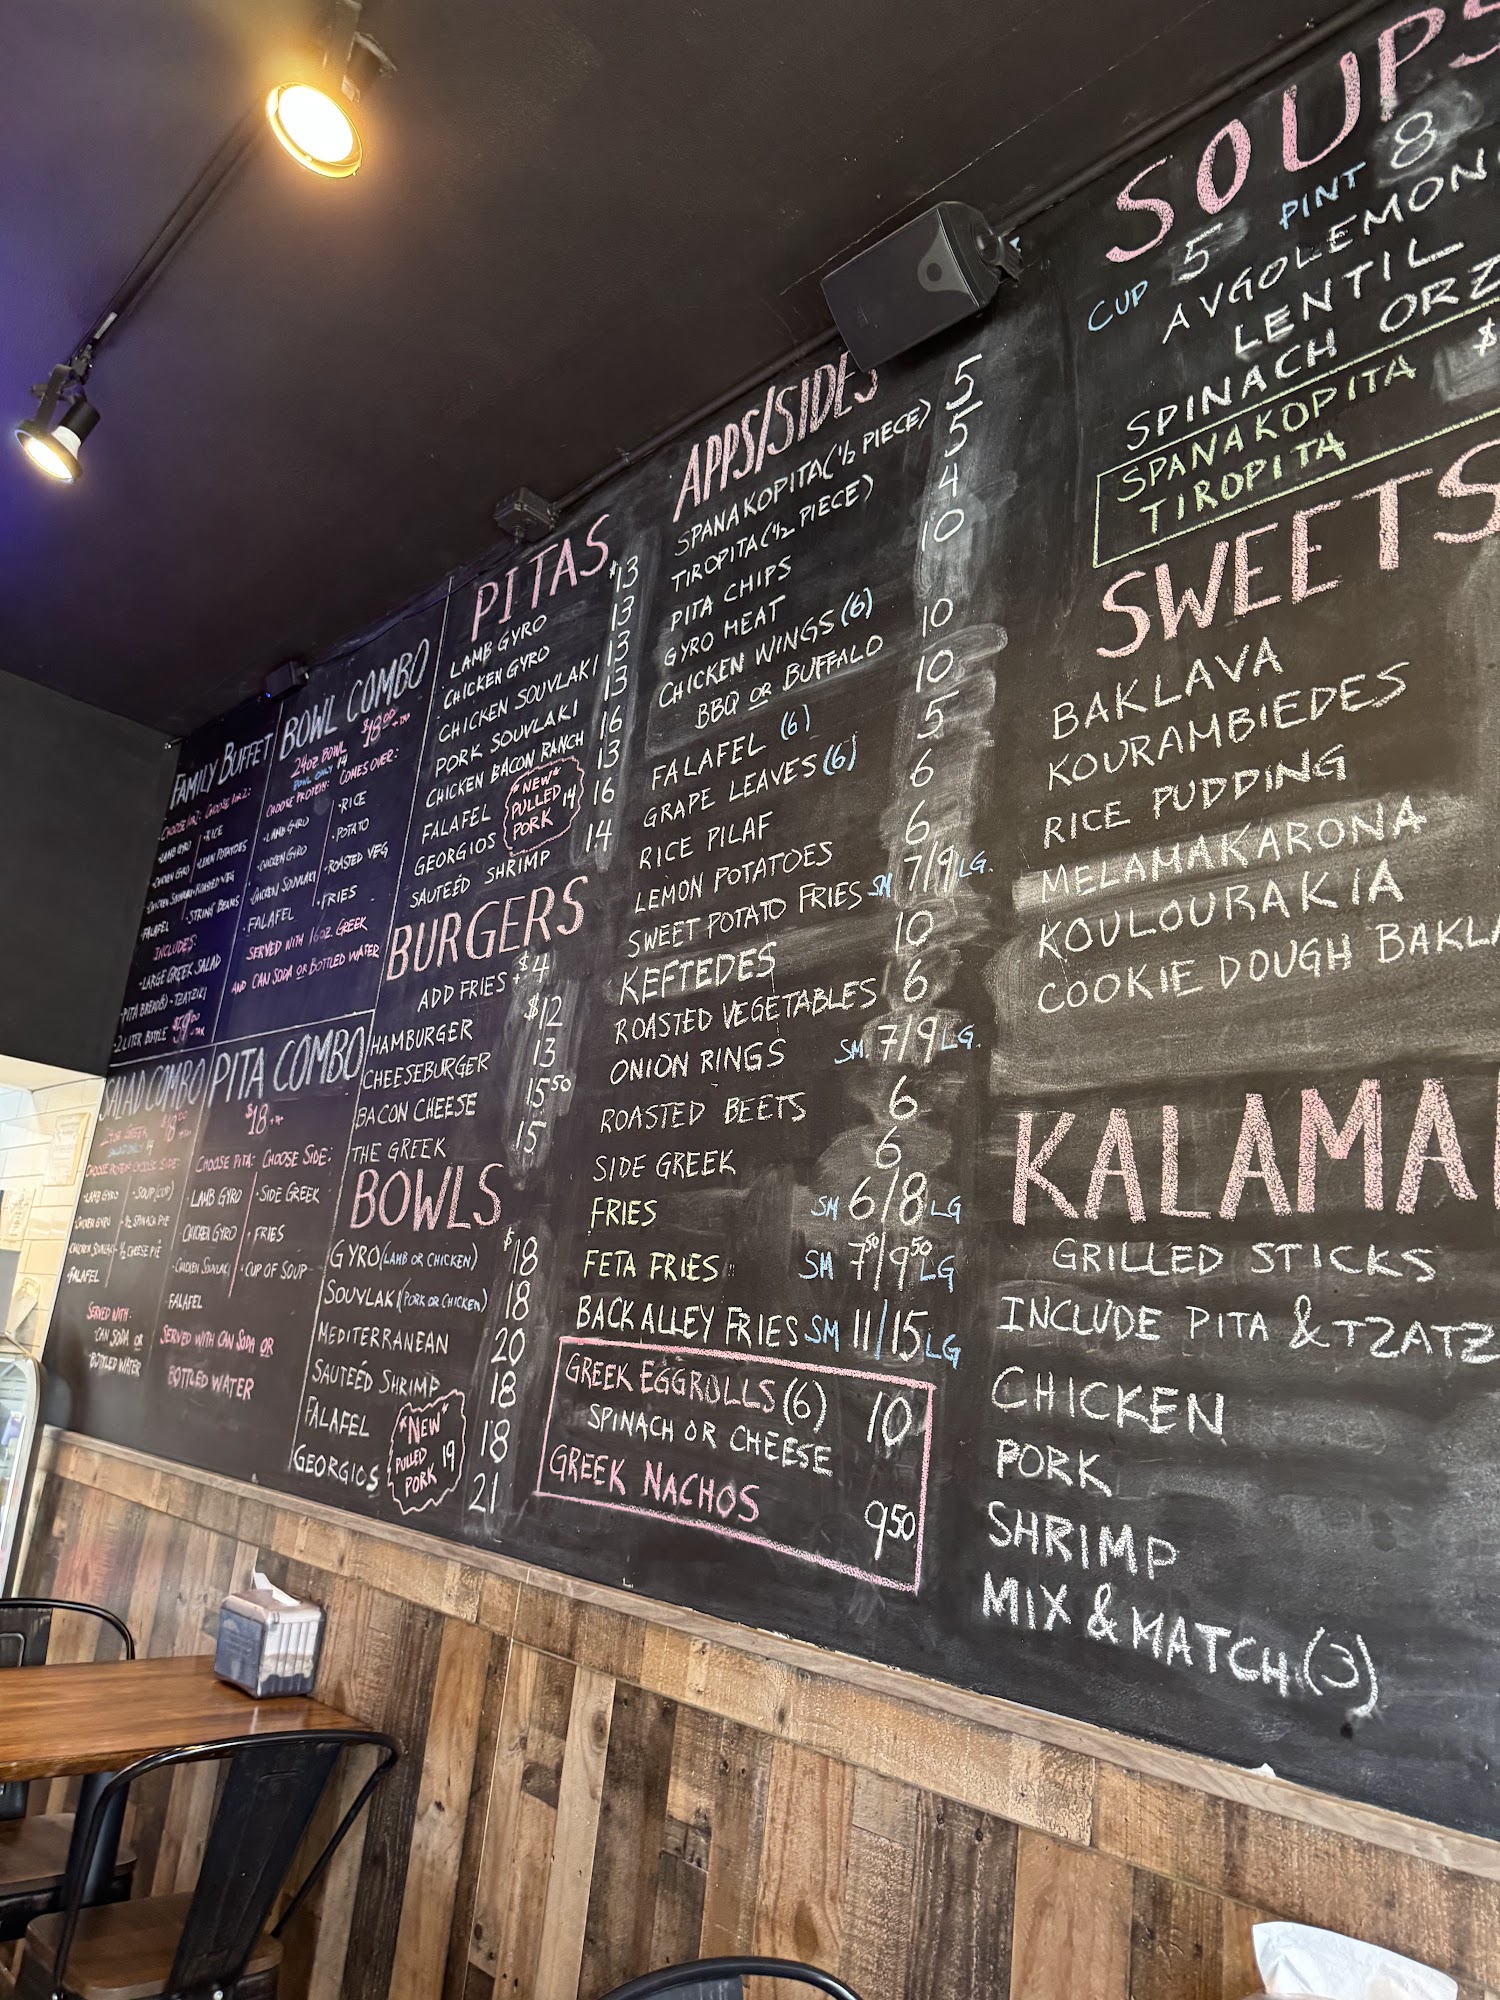 FAMILY BUFFET
CHOOSE 1 OR 2: CHOOSE 1 OR 2:
·LAMB GYRO ·RICE
·CHICKEN GYRO ·LEMON POTATOES
·CHICKEN SOUVLAKI ·ROASTED VEG
·FALAFEL ·STRING BEANS
INCLUDES:
·LARGE GREEK SALAD
·PITA BREAD(8) ·TZATZIKI
·2 LITER BOTTLE $59.00 +TAX
BOWL COMBO
24oz BOWL $18.00 +TAX
BOWL ONLY 14
CHOOSE PROTEIN: COMES OVER:
·LAMB GYRO ·RICE
·CHICKEN GYRO ·POTATO
·CHICKEN SOUVLAKI ·ROASTED VEG
·FALAFEL ·FRIES
SERVED WITH 16oz. GREEK
AND CAN SODA OR BOTTLED WATER
SALAD COMBO
$18.00 +TAX
CHOOSE PROTEIN: CHOOSE SIDE:
·LAMB GYRO ·SOUP(CUP)
·CHICKEN GYRO ·½ SPINACH PIE
·CHICKEN SOUVLAKI ·½ CHEESE PIE
·FALAFEL
SERVED WITH:
·CAN SODA OR
·BOTTLED WATER
PITA COMBO
$18 +TAX
CHOOSE PITA: CHOOSE SIDE:
·LAMB GYRO ·SIDE GREEK
·CHICKEN GYRO ·FRIES
·CHICKEN SOUVLAKI ·CUP OF SOUP
·FALAFEL
SERVED WITH CAN SODA OR
BOTTLED WATER
PITAS
LAMB GYRO $13
CHICKEN GYRO 13
CHICKEN SOUVLAKI 13
PORK SOUVLAKI 13
CHICKEN BACON RANCH 16
FALAFEL 13
GEORGIOS 16
SAUTEÉD SHRIMP 14
"NEW"
PULLED 14
PORK
BURGERS
ADD FRIES +$4
HAMBURGER $12
CHEESEBURGER 13
BACON CHEESE 15 50
THE GREEK 15
BOWLS
GYRO(LAMB OR CHICKEN) $18
SOUVLAKI(PORK OR CHICKEN) 18
MEDITERRANEAN 20
SAUTEÉD SHRIMP 18
FALAFEL 18
GEORGIOS 21
"NEW"
PULLED 19
PORK
APPS/SIDES
SPANAKOPITA(½ PIECE) 5
TIROPITA(½ PIECE) 5
PITA CHIPS 4
GYRO MEAT 10
CHICKEN WINGS(6) 10
BBQ OR BUFFALO
FALAFEL (6) 10
GRAPE LEAVES(6) 5
RICE PILAF 6
LEMON POTATOES 6
SWEET POTATO FRIES SM 7/9 LG.
KEFTEDES 10
ROASTED VEGETABLES 6
ONION RINGS SM. 7/9 LG.
ROASTED BEETS 6
SIDE GREEK 6
FRIES SM 6/8 LG
FETA FRIES SM 7 50/9 50 LG
BACK ALLEY FRIES SM 11/15 LG
GREEK EGGROLLS(6) 10
SPINACH OR CHEESE
GREEK NACHOS 9 50
SOUPS
CUP 5 PINT 8
AVGOLEMON
LENTIL
SPINACH ORZ
SPANAKOPITA $
TIROPITA
SWEETS
BAKLAVA
KOURAMBIEDES
RICE PUDDING
MELAMAKARONA
KOULOURAKIA
COOKIE DOUGH BAKLA
KALAMA
GRILLED STICKS
INCLUDE PITA & TZATZ
CHICKEN
PORK
SHRIMP
MIX & MATCH(3)